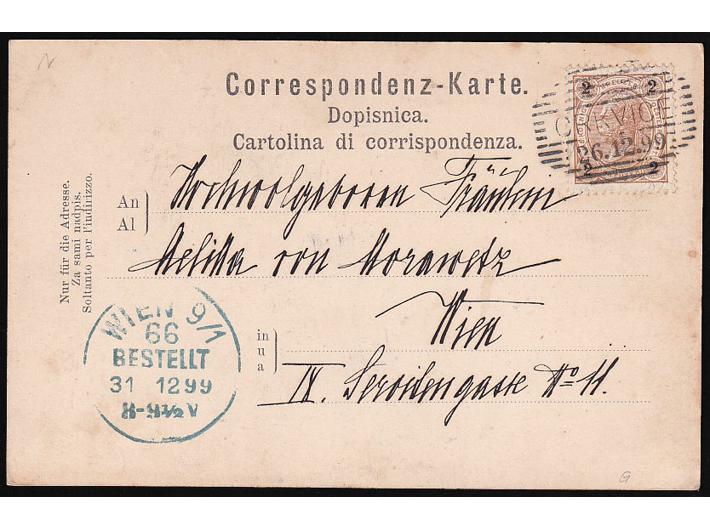 Correspondenz-Karte.
Dopisnica.
Cartolina di corrispondenza.
2 2
CRKVICE
26.12.99
2 2
Nur für die Adresse.
Za sami nadpis.
Soltanto per l'indirizzo.
An
Al
Hochwolgeboren Fräulein
Melitta von Morawetz
in
u
a
Wien
IX. Servitengasse No 11.
WIEN 9/1
66
BESTELLT
31 12 99
8-9½ V